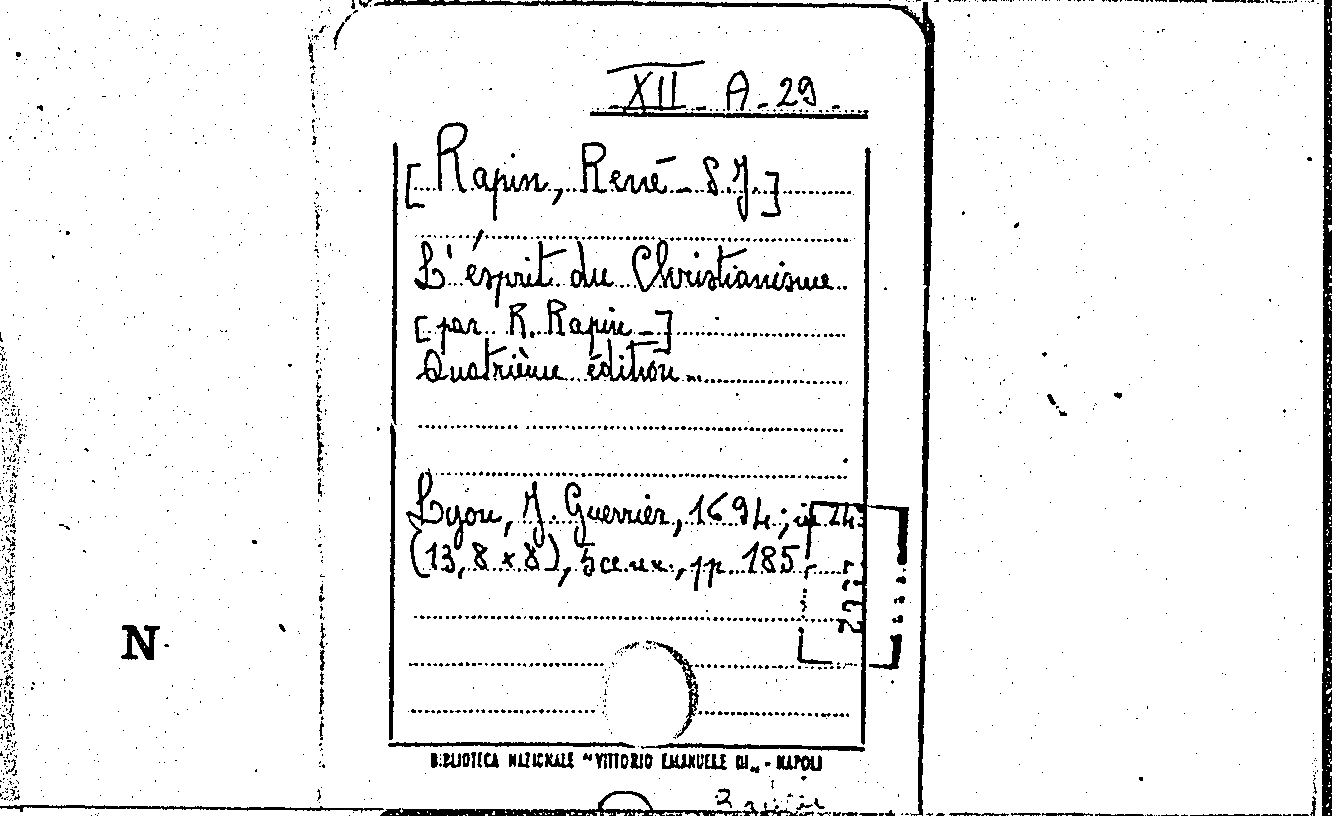 XII - A - 29 -
[Rapin, René - S.J.]
L'ésprit du Christianisme
[par R. Rapin -]
Quatrième édition -
Lyon, J. Guerrier, 1694; in 24.
(13,8 x 8), 5 ce. nn., pp. 185
N
BIBLIOTECA NAZIONALE "VITTORIO EMANUELE III" - NAPOLI